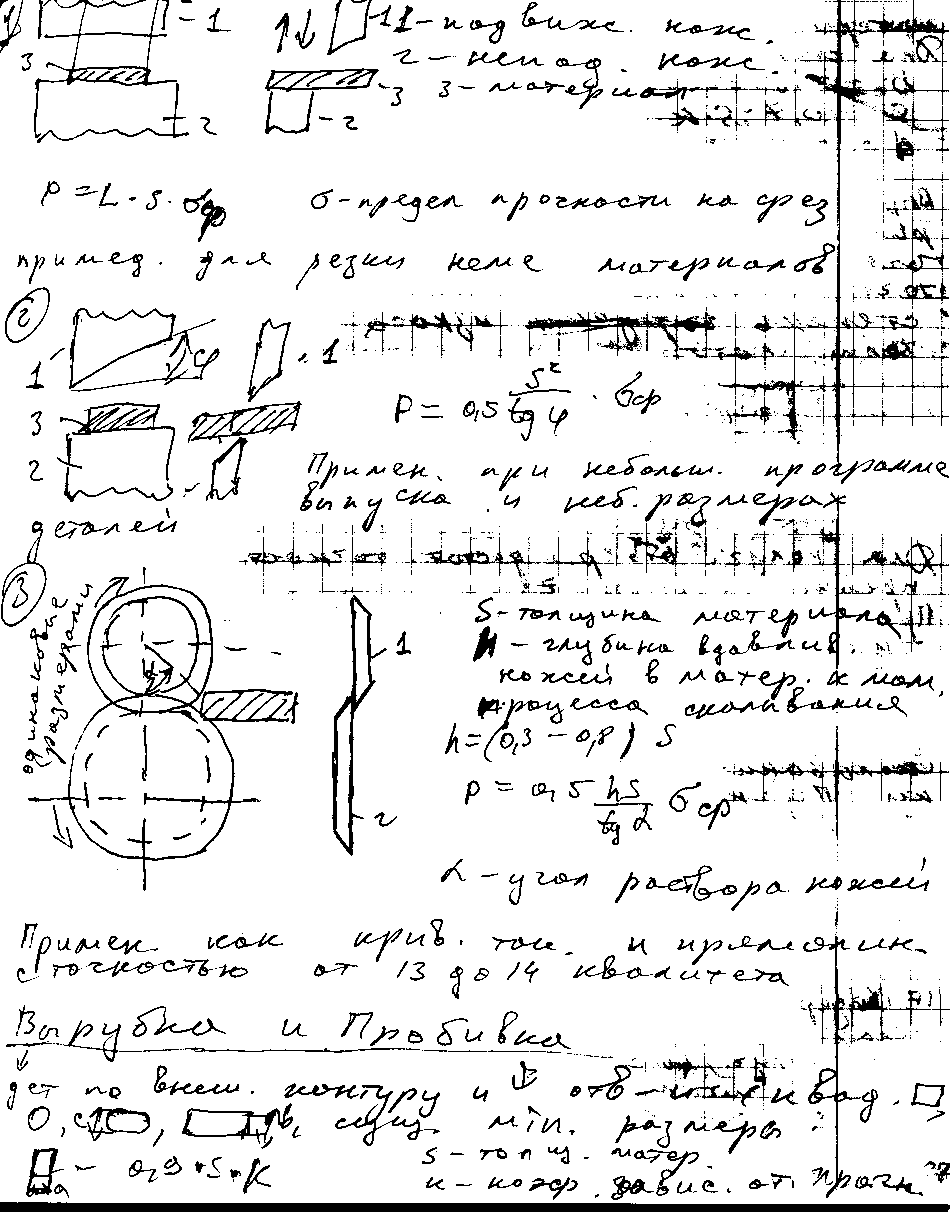 1 - 1 1 - подвиж. нож.
3 2 - непод. нож.
2 2 3 3 - материал
P = L · S · σср σ - предел прочности на срез
примед. для резки неме материалов
2
1 φ 1
3 P = 0,5 S²/tg φ · σср
2 Примен. при небольш. программе
выпуска и неб. размерах
деталей
3
одинаковые размерами
S - толщина материала
1 h - глубина вдавлив.
ножей в матер. к мом.
процесса скалывания
h = (0,3 - 0,8) S
P = 0,5 hS/tg α σср
2
α - угол раствора ножей
Примен. как крив. так и прямолин.
с точностью от 13 до 14 квалитета
Вырубка и Пробивка
дет по внеш. контуру и отв - квад.
сущ. min. размеры:
- 0,9 · S · K S - толщ. матер.
к - коэф. завис. от прочн.